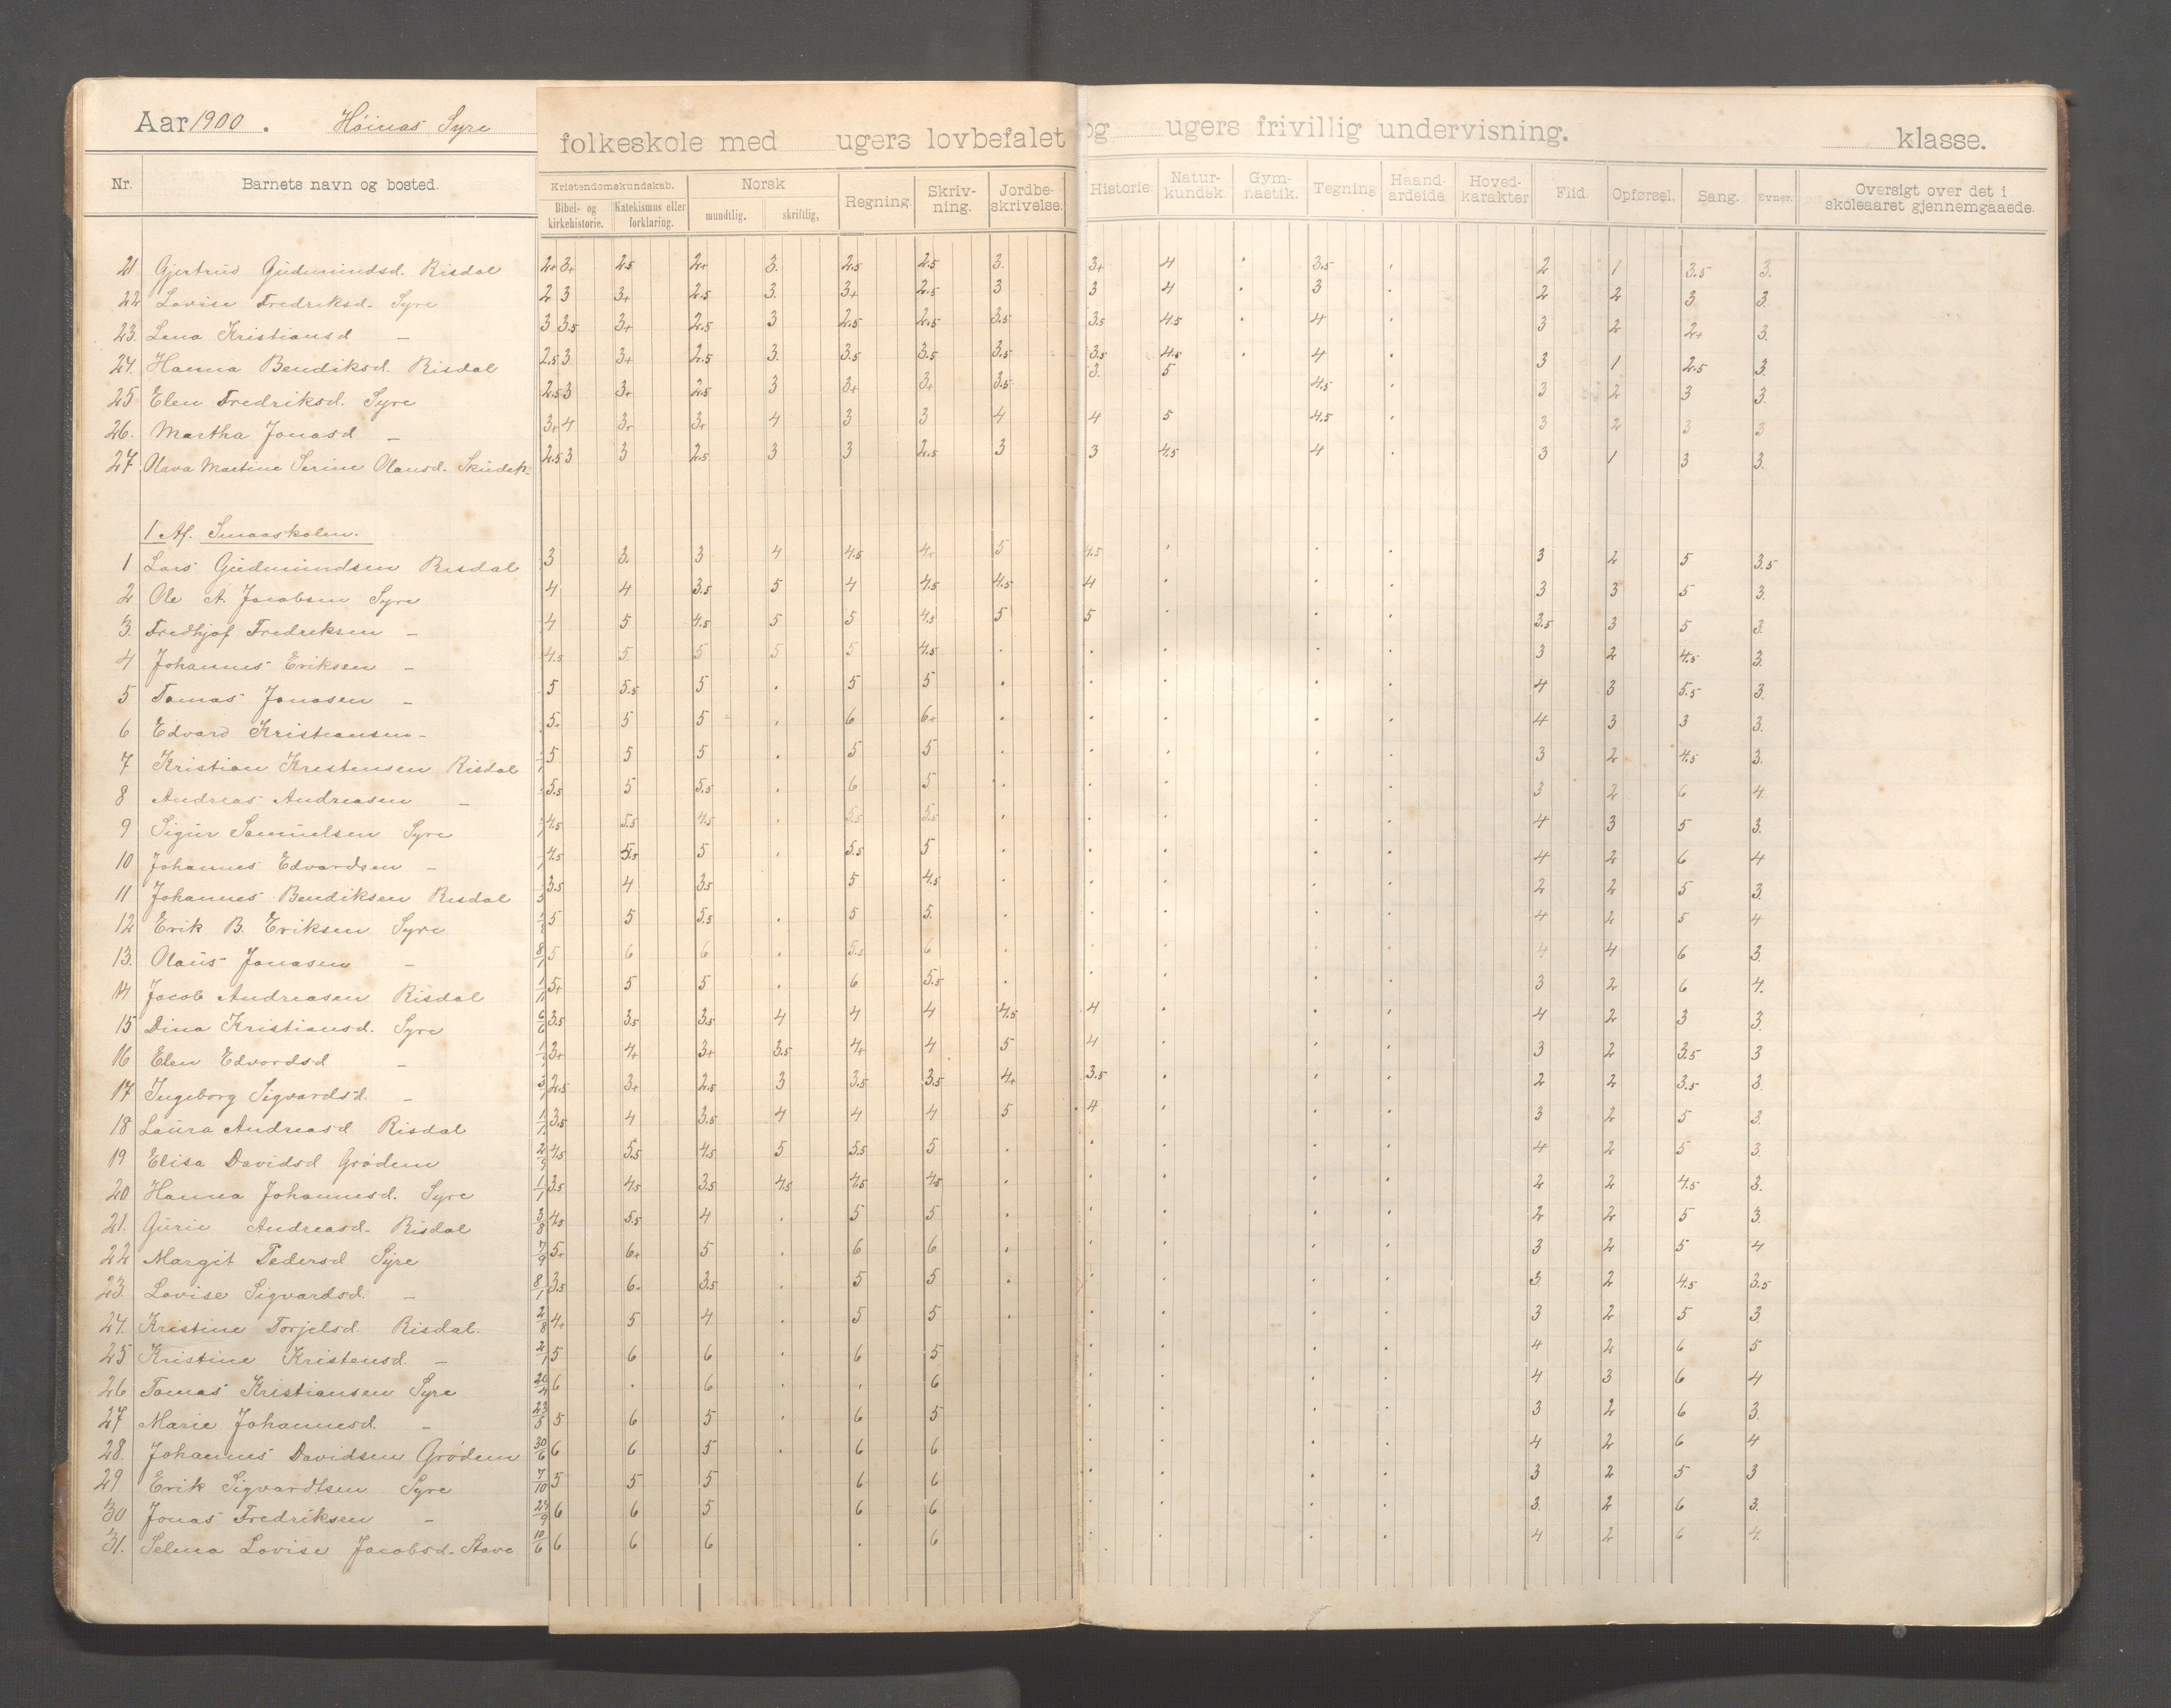 Aar 1900. Høinæs Syre folkeskole med ugers lovbefalet og ugers frivillig undervisning. klasse.
Nr. Barnets navn og bosted. Kristendomskundskab. Bibel- og kirkehistorie. Katekismus eller forklaring. Norsk mundtlig. skriftlig, Regning. Skriv-ning. Jordbe-skrivelse. Historie. Natur-kundsk. Gym-nastik. Tegning Haand-arbeide Hoved-karakter Flid. Opførsel. Sang. Evner. Oversigt over det i skoleaaret gjennemgaaede.
21 Gjertrud Gudmundsd. Risdal 2+ 3+ 2.5 2+ 3. 2.5 2.5 3. 3+ 4 . 3.5 . 2 1 3.5 3.
22 Lovise Fredreksd. Syre 2 3 3+ 2.5 3. 3+ 2.5 3 3 4 . 3 . 2 2 3 3.
23. Lena Kristiansd — 3 3.5 3+ 2.5 3 2.5 2.5 3.5 3.5 4.5 . 4 . 3 2 2+ 3.
24. Hanna Bendiksd. Risdal 2.5 3 3+ 2.5 3. 3.5 3.5 3.5 3.5 4.5 . 4 . 3 1 2.5 3.
25 Elen Fredriksd. Syre 2.5 3 3+ 2.5 3 3+ 3+ 3.5 3. 5 4.5 . 3 2 3 3.
26. Martha Jonasd — 3+ 4 3+ 3+ 4 3 3 4 4 5 4.5 . 3 2 3 3
27. Olava Martine Serine Olausd. Skudeh. 2.5 3 3 2.5 3 3 2.5 3 3 4.5 4 . 3 1 3 3.
1 Af. Smaaskolen.
1 Lars Gudmundsen Risdal 3 3. 3 4 4.5 4+ 5 4.5 . . . 3 2 5 3.5
2 Ole A. Jacobsen Syre 4 4 3.5 5 4 4.5 4.5 4 . . . 3 3 5 3.
3. Fredhjof Fredreksen — 4 5 4.5 5 5 4.5 5 5 . . . 3.5 3 5 3.
4 Johannes Eriksen — 4.5 5 5 5 5 4.5 . . . . . 3 2 4.5 3.
5 Tomas Jonasen — 5 5.5 5 . 5 5 . . . . . 4 3 5.5 3.
6 Edvard Kristiansen — 5+ 5 5 . 6 6+ . . . . . 4 3 3 3.
7 Kristian Krestensen Risdal 5 5 5 . 5 5 . . . . . 3 2 4.5 3.
8 Andreas Andreasen — 5.5 5 5.5 . 6 5 . . . . . 3 2 6 4
9 Sigur Samuelsen Syre 4.5 5.5 4.5 . 5.5 5.5 . . . . . 4 3 5 3.
10 Johannes Edvardsen — 4.5 5.5 5 . 5.5 5 . . . . . 4 2 6 4
11 Johannes Bendiksen Risdal 3.5 4 3.5 5 4.5 . . . . . 2 2 5 3.
12 Erik B. Eriksen Syre 5 5 5.5 . 5 5. . . . . . 4 2 5 4
13. Olaus Jonasen — 8/1 5 6 6 . 5.5 6 . . . . . 4 4 6 3.
14 Jacob Andreasen Risdal 1/11 5+ 5 5 . 6 5.5 . . . . . 3 2 6 4.
15 Dina Kristiansd. Syre 6/6 3.5 3.5 3.5 4 4 4 4.5 4 . . . 4 2 3 3.
16 Elen Edvardsd — 3+ 4+ 3+ 3.5 4+ 4 5 4 . . . 3 2 3.5 3
17 Ingeborg Sigvardsd. — 2.5 3+ 2.5 3 3.5 3.5 4+ 3.5 . . . 2 2 3.5 3.
18 Laura Andreasd Risdal 1/1 3.5 4 3.5 4 4 4 5 4 . . . 3 2 5 3.
19 Elisa Davidsd Grødem 2/9 4.5 5.5 4.5 5 5.5 5 . . . . . 4 2 5 3.
20 Hanna Johannesd. Syre 1/1 3.5 4.5 3.5 4.5 4.5 4.5 . . . . . 2 2 4.5 3.
21. Gurie Andreasd. Risdal 3/8 4.5 5.5 4 . 5 5 . . . . . 2 2 5 3.
22 Margit Pedersd Syre 7/9 5+ 6+ 5 . 6 6 . . . . . 3 2 5 4
23. Lovise Sigvardsd. — 8/1 3.5 6. 3.5 . 5 5 . . . . . 3 2 4.5 3.5
24. Kristine Torjelsd. Risdal. 2/8 4+ 5 4 . 5 5 . . . . . 3 2 5 3.
25 Kristine Kristensd. — 2/1 5 6 6 . 6 5 . . . . 4 2 6 5
26 Tomas Kristiansen Syre 20/4 6 . 6 . . 6 . . . . 4 3 6 4
27 Marie Johannesd. — 23/5 5 6 5 . 6 5 . . . . 3 2 6 3.
28. Johannes Davidsen Grødem 30/6 6 6 5 . 6 6 . . . . 4 2 6 4
29 Erik Sigvardtsen Syre 7/10 5 5 5 6 6 . . . . 3 2 5 3
30 Jonas Fredriksen — 29/9 6 6 5 6 6 . . . . 3. 2 6 3.
31. Selma Lovise Jacobsd. Aave 10/6 6 6 6 . 6 . . . . 4 2 6 4.